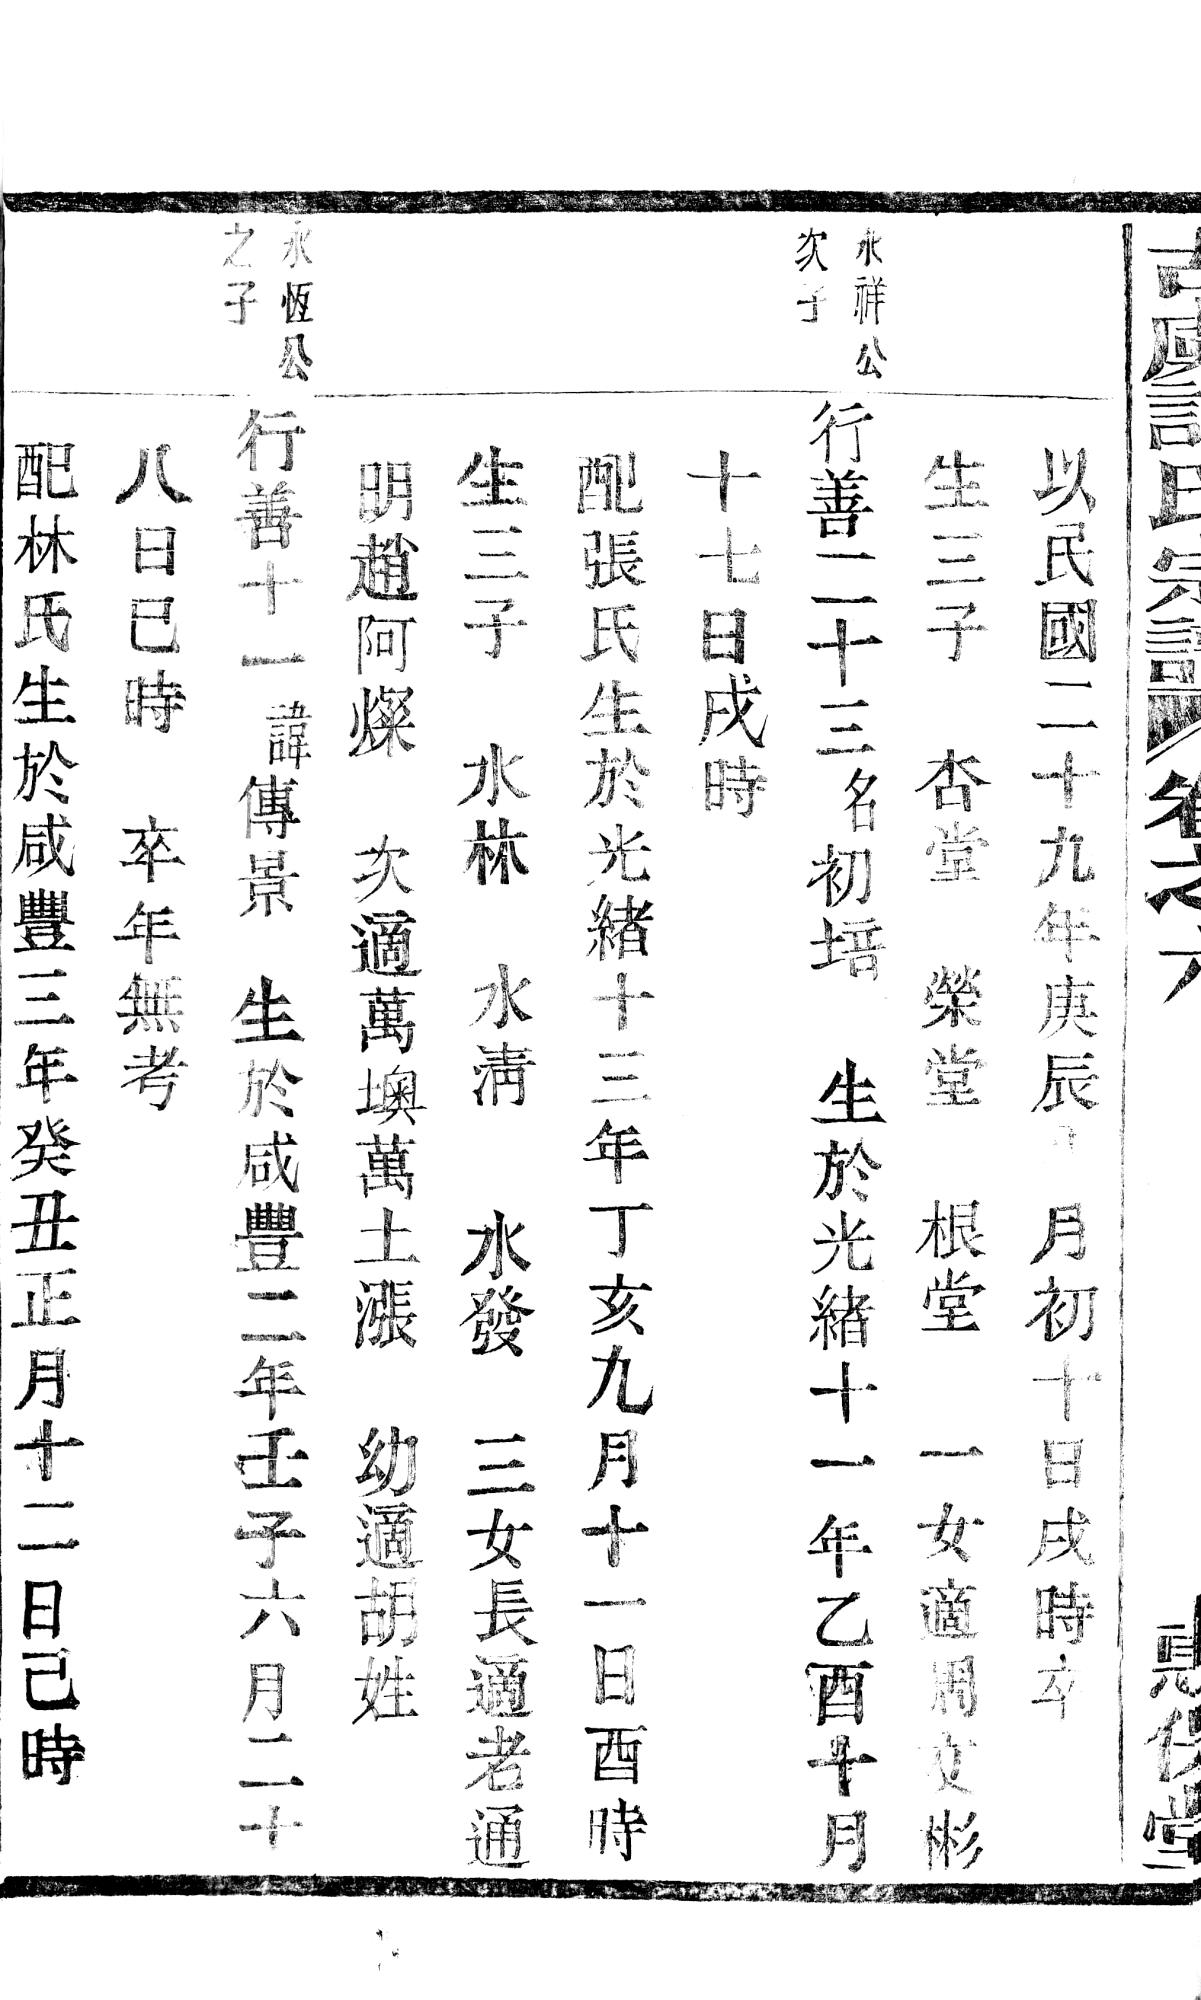 古虞許氏宗譜 卷之六
堂
以民國二十九年庚辰 月初十日戌時卒
生三子 杏堂 榮堂 根堂 一女適周文彬
永祥公
次子
行善二十三名初培 生於光緒十一年乙酉十月
十七日戌時
配張氏生於光緒十三年丁亥九月十一日酉時
生三子 水林 水清 水發 三女長適老通
明趙阿燦 次適萬墺萬土漲 幼適胡姓
永恆公
之子
行善十一諱傳景 生於咸豐二年壬子六月二十
八日巳時 卒年無考
配林氏生於咸豐三年癸丑正月十二日己時